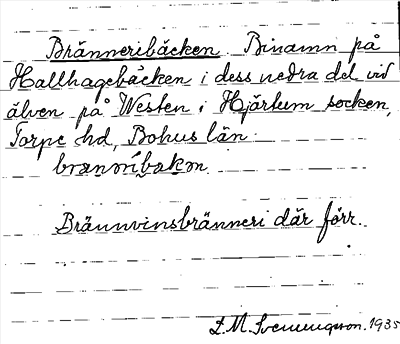 Bränneribäcken Binamn på
Hallhagebäcken i dess nedra del vid
älven på Westen i Hjärtum socken,
Torpe hd, Bohus län.
Brännvinsbränneri där förr.
1935